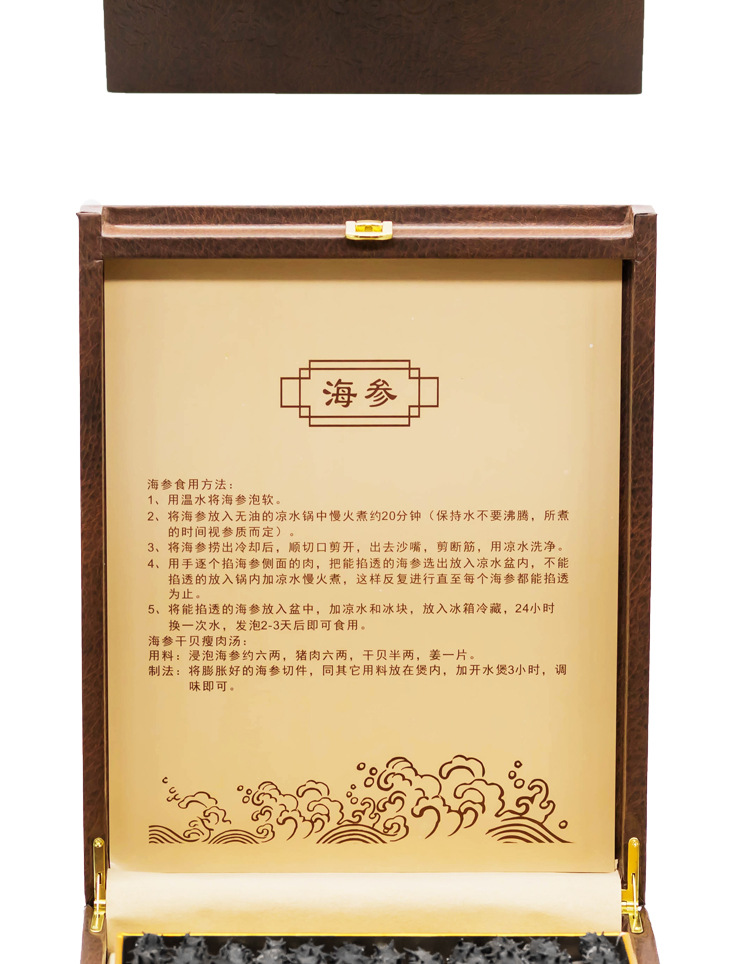 海参
海参食用方法：
1、用温水将海参泡软。
2、将海参放入无油的凉水锅中慢火煮约20分钟（保持水不要沸腾，所煮
的时间视参质而定）。
3、将海参捞出冷却后，顺切口剪开，出去沙嘴，剪断筋，用凉水洗净。
4、用手逐个掐海参侧面的肉，把能掐透的海参选出放入凉水盆内，不能
掐透的放入锅内加凉水慢火煮，这样反复进行直至每个海参都能掐透
为止。
5、将能掐透的海参放入盆中，加凉水和冰块，放入冰箱冷藏，24小时
换一次水，发泡2-3天后即可食用。
海参干贝瘦肉汤：
用料：浸泡海参约六两，猪肉六两，干贝半两，姜一片。
制法：将膨胀好的海参切件，同其它用料放在煲内，加开水煲3小时，调
味即可。